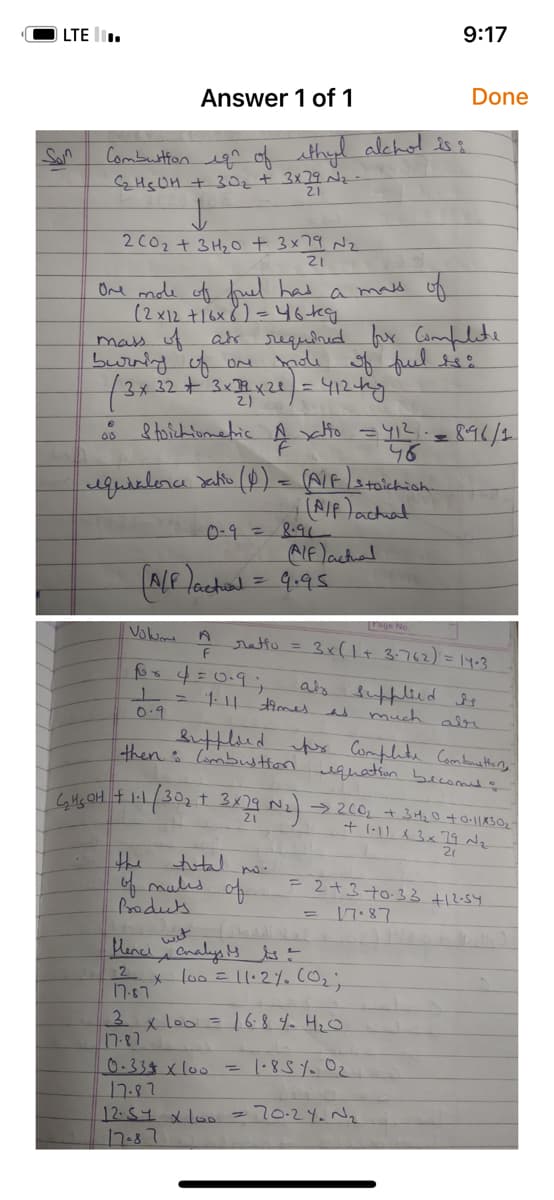 LTE 9:17
Answer 1 of 1 Done
Soln Combustion eqn of ethyl alchol is:
C2H5OH + 3O2 + 3x79/21 N2 -
↓
2CO2 + 3H2O + 3x79/21 N2
One mole of fuel has a mass of
(2x12 +16x6) = 46 kg
mass of air required for Complete
burning of one mole of fuel is:
(3x32 + 3x79/21 x28) = 412 kg
∴ Stoichiometric A/F ratio = 412/46 = 8.96/1
equivalence ratio (φ) = (A/F)stoichioh / (A/F)actual
0.9 = 8.96 / (A/F)actual
(A/F)actual = 9.95
Page No.
Volume A/F ratio = 3x(1+3.762) = 14.3
for φ=0.9; air supplied is
1/0.9 = 1.11 times as much air
supplied for Complete Combustion,
then: Combustion equation becomes:
C2H5OH + 1.1/(3O2 + 3x79/21 N2) → 2CO2 + 3H2O + 0.11x3O2
+ 1.11 x 3x79/21 N2
the total no.
of moles of = 2+3+0.33 +12.54
Products = 17.87
Hence wet analysis is:
2/17.87 x 100 = 11.2 % CO2;
3/17.87 x 100 = 16.8 % H2O
0.33/17.87 x 100 = 1.85 % O2
12.54/17.87 x 100 = 70.2 % N2